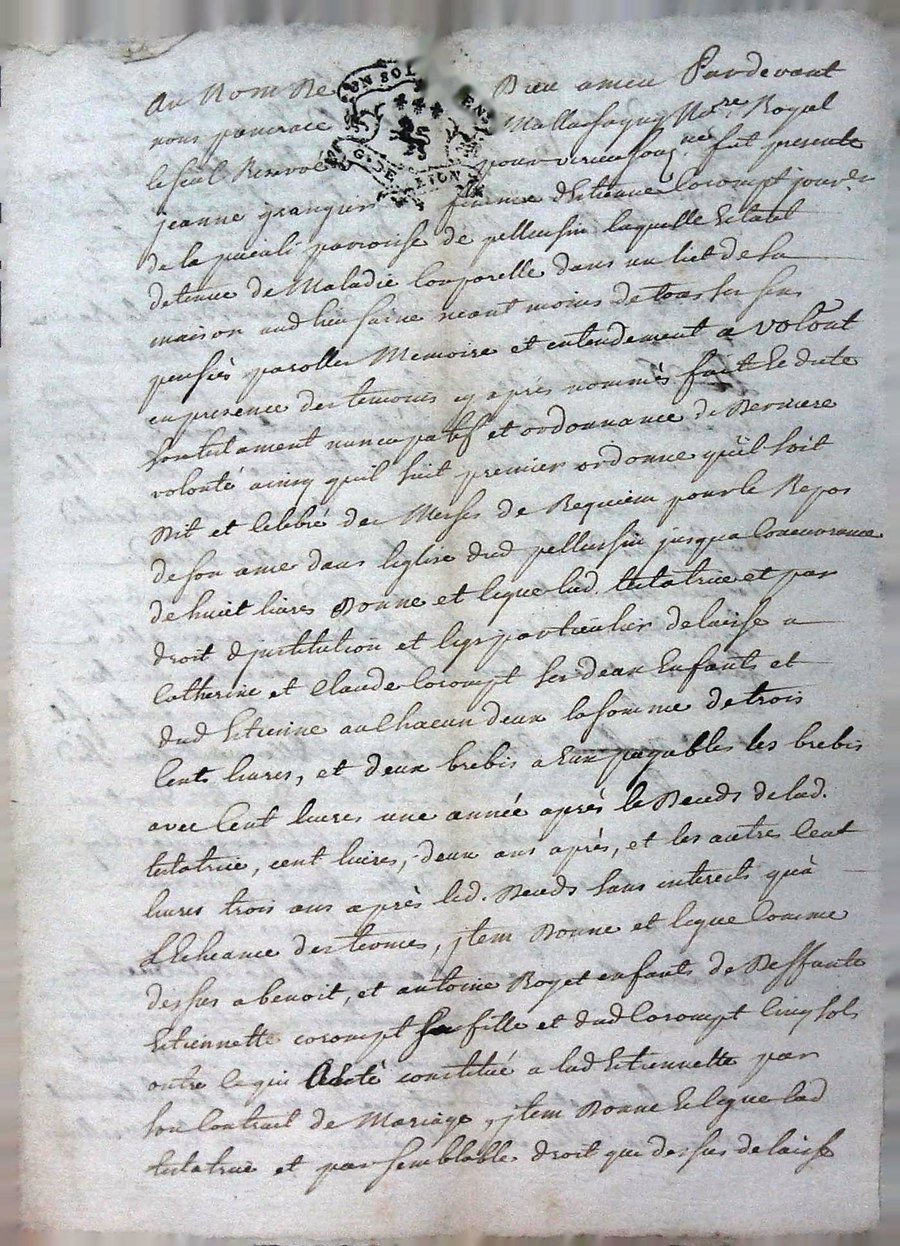 Au Nom De Dieu amen Pardevant
nous pancrace Mallassagny No.re Royal
le seul Reservé pour vernen soug.né fut presente
jeanne granger femme d'Etienne Corompt jour.r
de la pieuli parroisse de pellussin laquelle Estant
detenue de Maladie Corporelle dans un liet de sa
maison aud lieu saine neant moins de tous ses sens
pensées parolle Memoire et entendement a volont
en presence des temoins cy après nommés fait Ee dicte
son testament nuncupatif et ordonnance de Derniere
volonté ainsy quil suit premier ordonne qu'il soit
Dit et Celebré des Messes de Requiem pour le Repos
de son ame dans leglise dud pellussin jusqua Concurrance
de huict livres Donne et legue lad. testatrice et par
droit d'jnstitution et legs particulier delaisse a
Catherine et Claude Corompt ses deux Enfants et
dud Estienne au Chacun deux la somme de trois
Cents livres, et deux brebis a Eux payables les brebis
avec Cent livres une année après le Deceds de lad.
testatrice, cent livres, deux ans après, et les autres Cent
livres trois ans après led. Deceds sans interests qu'à
L'Echeance des termes, jtem Donne et legue Comme
dessus a benoit, et antoine Boyet enfants de Deffunte
Estiennette corompt sa fille et dud Corompt Cinq sols
outre ce qui a Esté constitué a lad Estiennette par
son Contrait de Mariage, jtem Donne Et legue lad
testatrice et par semblable droit que dessus delaisse
UN SOL
G. DE LION